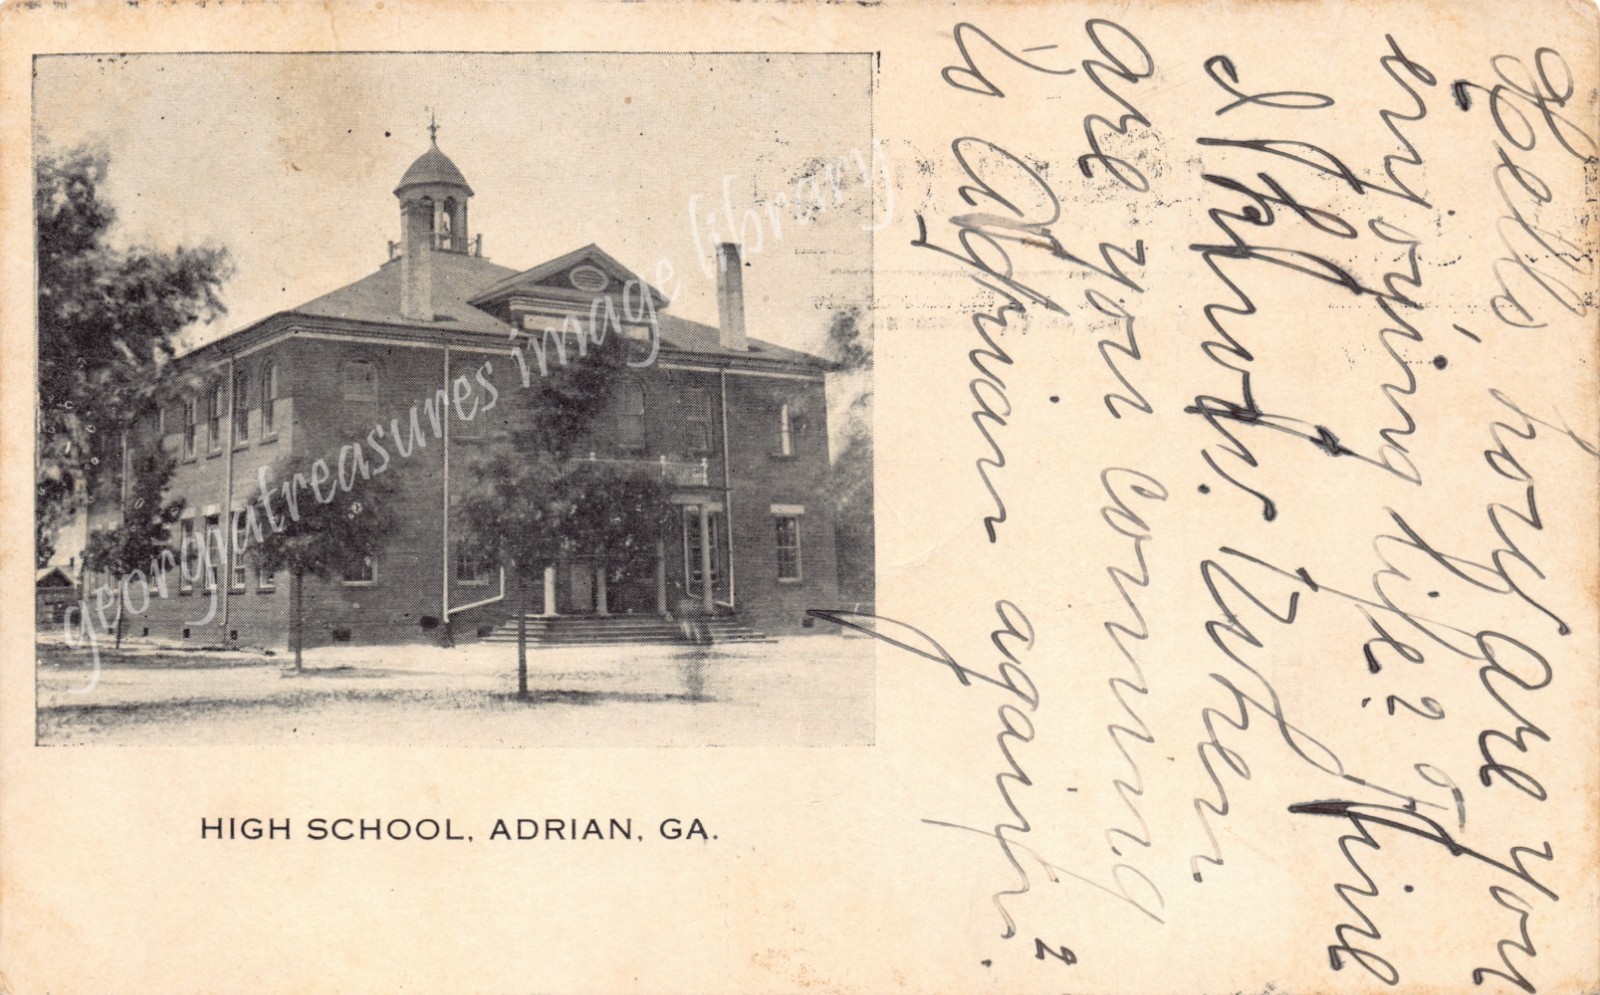 georgiatreasures image library
HIGH SCHOOL, ADRIAN, GA.
Hello, how are you
enjoying life? Fine
I When
are you coming
to Adrian again?